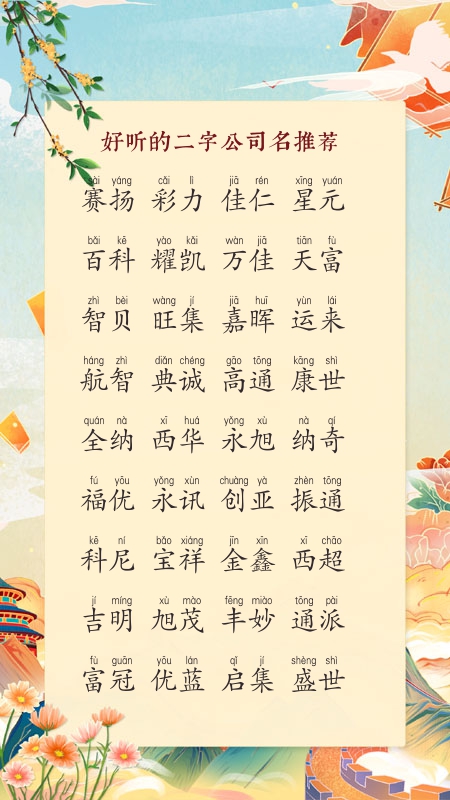 好听的二字公司名推荐
sài yáng cǎi lì jiā rén xīng yuán
赛扬 彩力 佳仁 星元
bǎi kē yào kǎi wàn jiā tiān fù
百科 耀凯 万佳 天富
zhì bèi wàng jí jiā huī yùn lái
智贝 旺集 嘉晖 运来
háng zhì diǎn chéng gāo tōng kāng shì
航智 典诚 高通 康世
quán nà xī huá yǒng xù nà qí
全纳 西华 永旭 纳奇
fú yōu yǒng xùn chuàng yà zhèn tōng
福优 永讯 创亚 振通
kē ní bǎo xiáng jīn xīn xī chāo
科尼 宝祥 金鑫 西超
jí míng xù mào fēng miào tōng pài
吉明 旭茂 丰妙 通派
fù guān yōu lán qǐ jí shèng shì
富冠 优蓝 启集 盛世